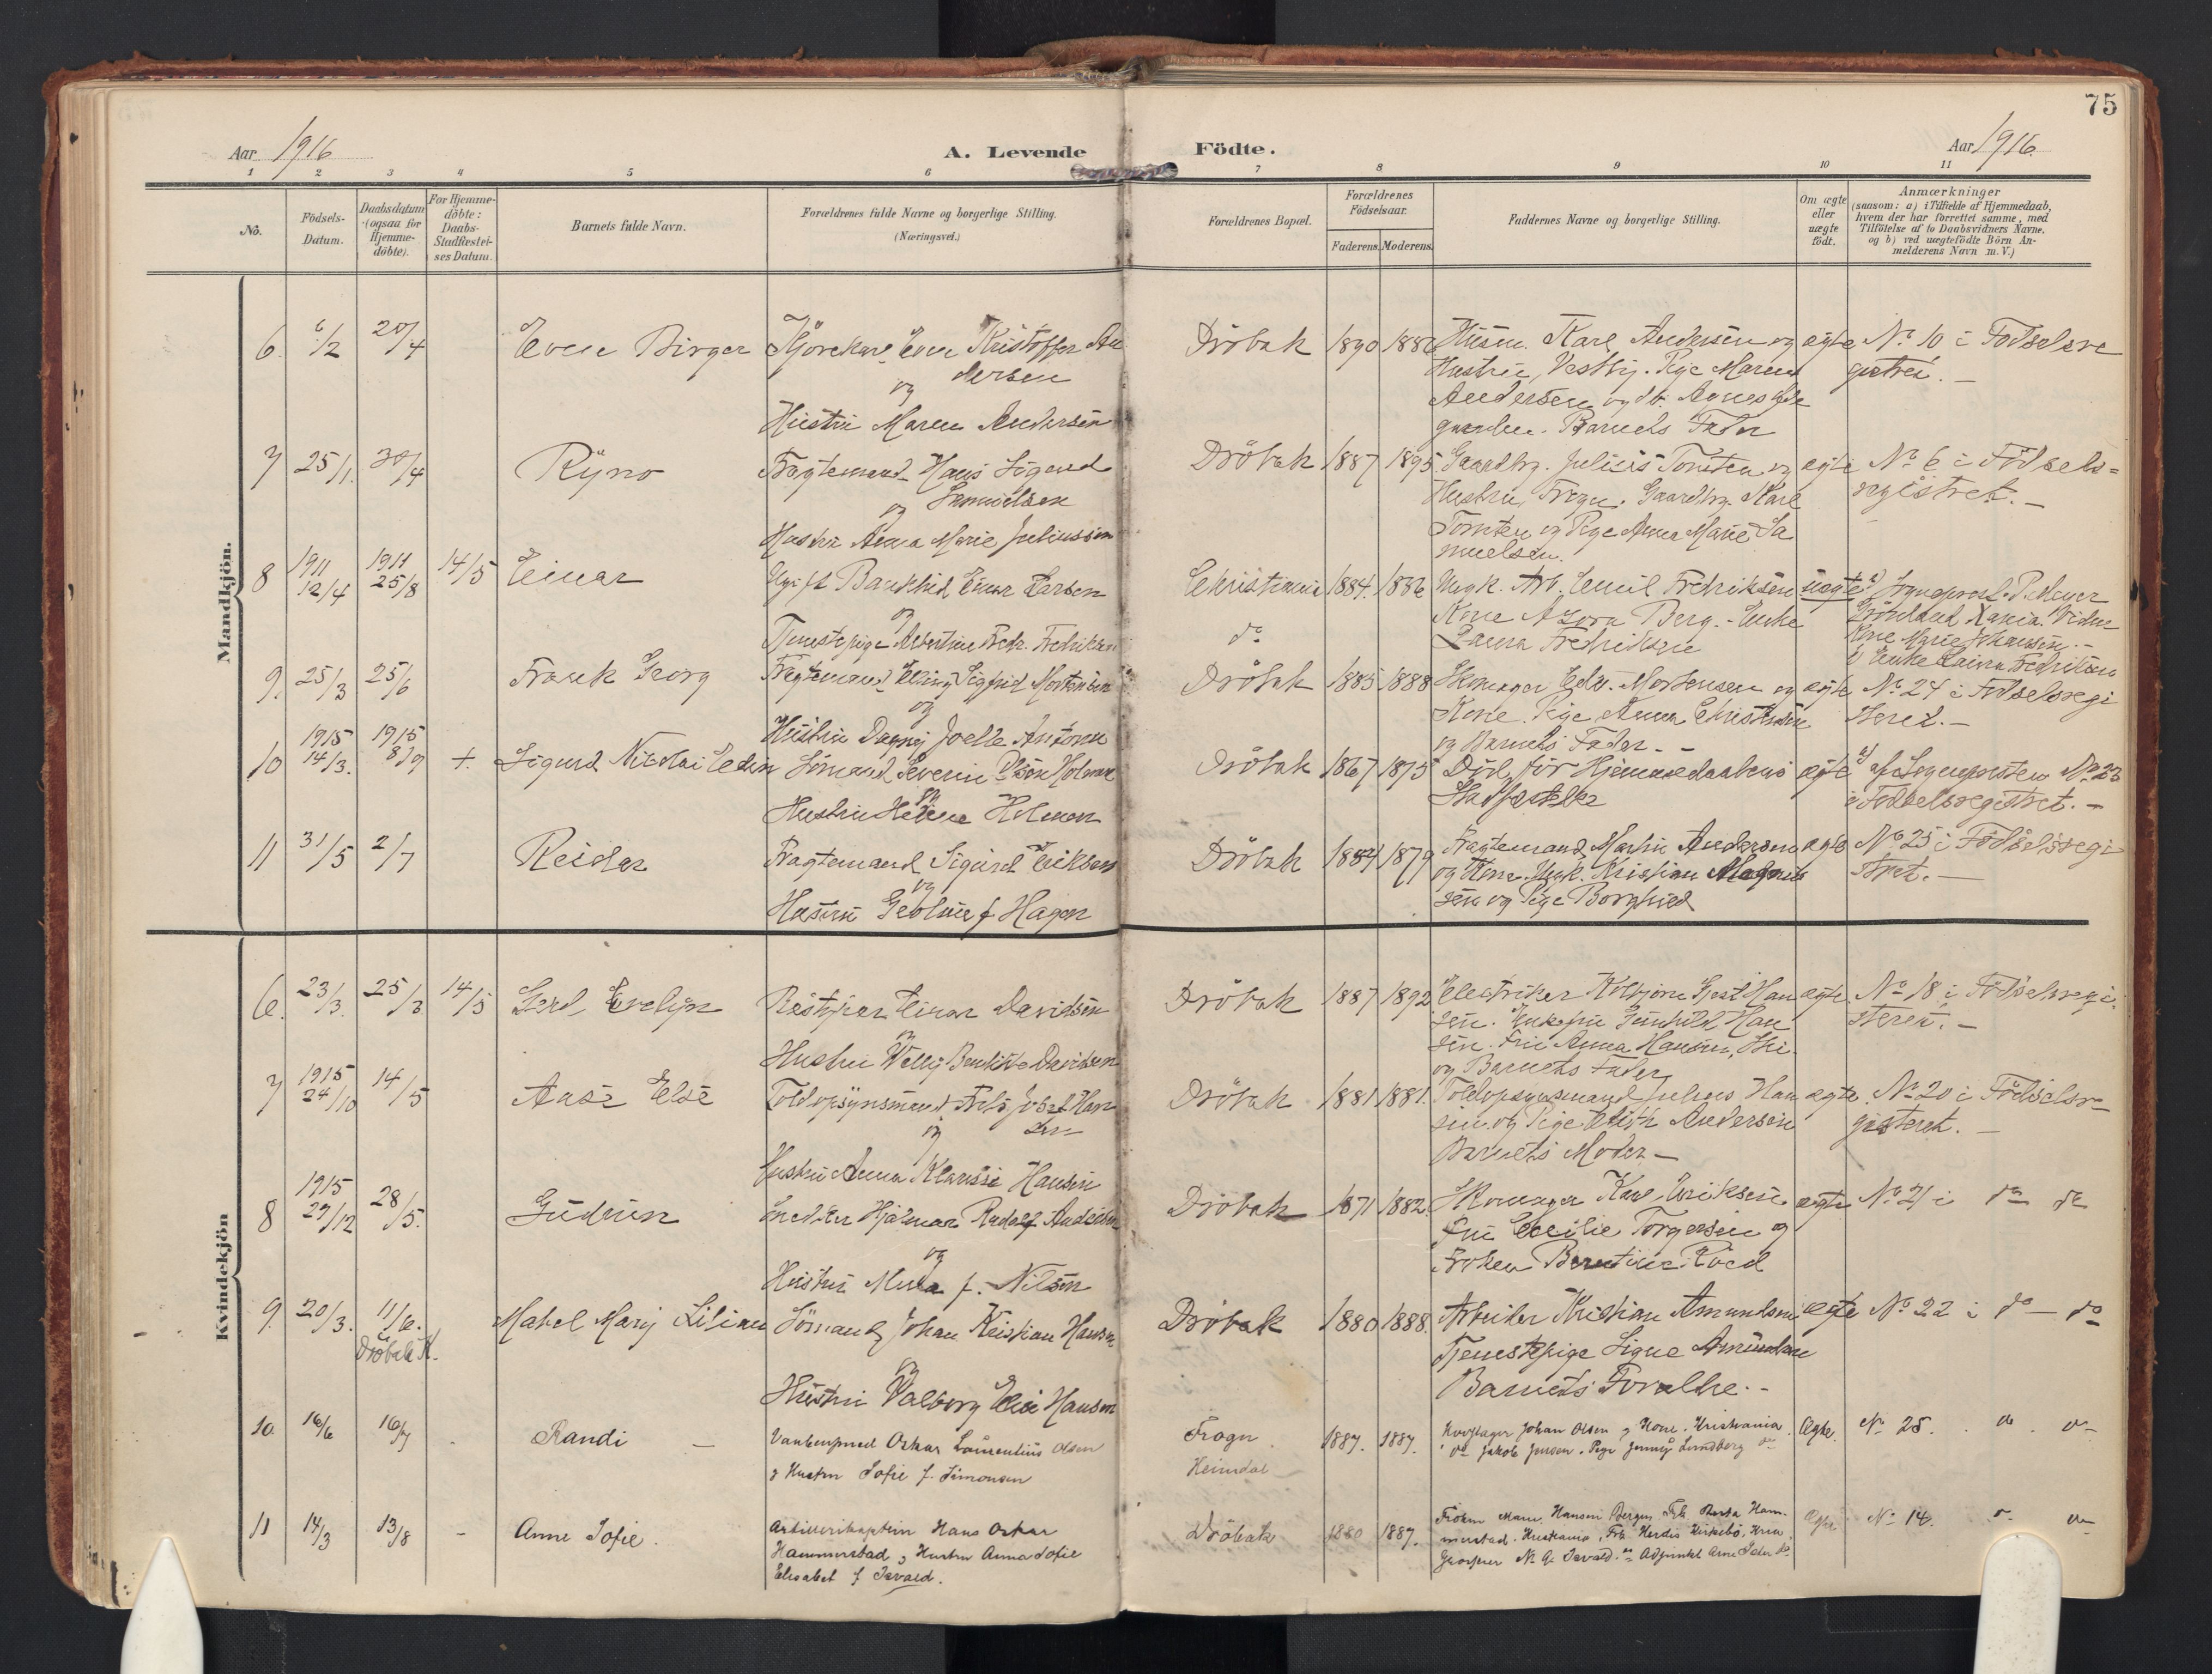 75
Aar 1916
A. Levende Födte.
Aar 1916.
1 2 3 4 5 6 7 8 9 10 11
No.
Födsels-
Datum.
Daabsdatum
(ogsaa for
Hjemme-
döbte).
For Hjemme-
döbte:
Daabs-
Stadfæstel-
ses Datum.
Barnets fulde Navn.
Forældrenes fulde Navne og borgerlige Stilling.
(Næringsvei.)
Forældrenes Bopæl.
Forældrenes
Födselsaar.
Faderens. Moderens.
Faddernes Navne og borgerlige Stilling.
Om ægte
eller
uægte
födt.
Anmærkninger
(saasom: a) i Tilfælde af Hjemmedaab,
hvem der har forrettet samme, med
Tilföielse af to Daabsvidners Navne,
og b) ved uægtefödte Börn An-
melderens Navn m. V.)
Mandkjön.
6. 6/2 24/4 Even Birger
Kjörekarl Even Kristoffer An
dersen
og
Hustru Maren Andersen
Dröbak 1890 1886
Husm. Karl Andersen og
Hustru, Vestby. Pige Maren
Andersen og
Barnets Fader
ægte No 10 i Födselsre
gistret. —
7 25/1. 30/4 Ryno
Fragtemand Hans Sigurd
Samuelsen
og
Hustru Anna Marie Juliussen
Dröbak 1887 1895
Gaardbr. Julius Tomter og
Hustru, Frogn. Gaardbr. Karl
Tomter og Pige Anna Marie Sa
muelsen.
ægte No 6 i Födsels=
registret. —
8 1911 12/4 1911 25/8 14/5 Einar
Ugift Bankbud Einar Larsen
og
Tjenestepige Albertine Fredr. Fredriksen
Christiania 1884. 1886
do
Ungk. Arb. Emil Fredriksen
Kone Azora Berg. - Enke
Laura Fredriksen
uægte a) Sogneprest P. Meyer
Grönland Kania. Vidner
Kone Marie Johansen. —
b) Enke Laura Fredriksen
9. 25/3 25/6 Frank Georg
Fragtemand Elling Sigfrid Mortensen
og
Hustru Dagny Joelle Antonie
Dröbak 1885 1888
Skomager Edv. Mortensen og
Kone. Pige Anna Christensen
og Barnets Fader. —
ægte No 24 i Födselsregi
steret. —
10 1915 14/3. 1915 8/9 + Sigurd Nicolai Edvin
Sömand Severin Olsen Holmen
og
Hustru Helene Holmen
Dröbak 1867 1875
Död för Hjemmedaabens
Stadfæstelse
ægte a) af Sognepresten No 23
i Födselsregistret. —
11 31/5 2/7 Reidar
Fragtemand Sigurd Eriksen
og
Hustru Gebline f. Hagen
Dröbak 1884 1879
Fragtemand Martin Andersen
og Kone. Ungk. Kristian Magnus
sen og Pige Borghild
ægte No 25 i Födselsregi
stret. —
Kvindekjön
6. 23/3. 25/3 14/5 Gerd Evelyn
Einar Davidsen
og
Hustru Welly Benedikte Davidsen
Dröbak 1887 1892
Electriker Kolbjörn Hjort Han
sen. Enkefru Gunhild Han
sen. Fru Anna Hansen, Ski.
og Barnets Fader
ægte No 18 i Födselsregi-
steret. —
7 1915 24/10 14/5 Aase Else
Toldopsynsmand Johan Han
sen
og
Hustru Anna Klarisse Hansen
Dröbak 1881 1881.
Toldopsynsmand Julius Han
sen og Pige Edith Andersen
Barnets Moder —
ægte. No 20 i Födselsre
gisteret. —
8 1915 27/12 28/5. Gudrun
Snedker Hjalmar Rudolf Andersen
og
Hustru Mina f. Nilsen
Dröbak 1871 1882.
Skomager Karl Eriksen
Fru Cecilie Torgersen og
Fröken Berntine Röed
ægte No 21 i do do
9. 20/3. 11/6. i Dröbak K. Mabel Mary Lilian
Sömand Johan Kristian Hansen
og
Hustru Valborg Elise Hansen
Dröbak 1880 1888.
Arbeider Kristian Amundsen
Tjenestepige Signe Amundsen
Barnets Forældre. —
ægte No 22 i do — do
10. 16/6 16/7 - Randi —
Oskar Laurentius Olsen
og Hustru Sofie f. Simonsen
Frogn 1887. 1887.
Heimdal
Johan Olsen og Kone. Kristiania
do Jakob Jensen. Pige Jenny Lundberg do
Ægte. No 25. do do
11 14/3 13/8 - Anne Sofie.
Artillerikaptein Hans Oskar
Hammerstad og Hustru Anna Sofie
Elisabet f. Isvald.
Dröbak 1880 1887.
Fröken Marie Hansen Bergen, Frk. Ham-
merstad. Kristiania, Frk. Herdis Kirkebö, Kria
Isvald. do Adjunkt Arne do
Ægte No 14. do do